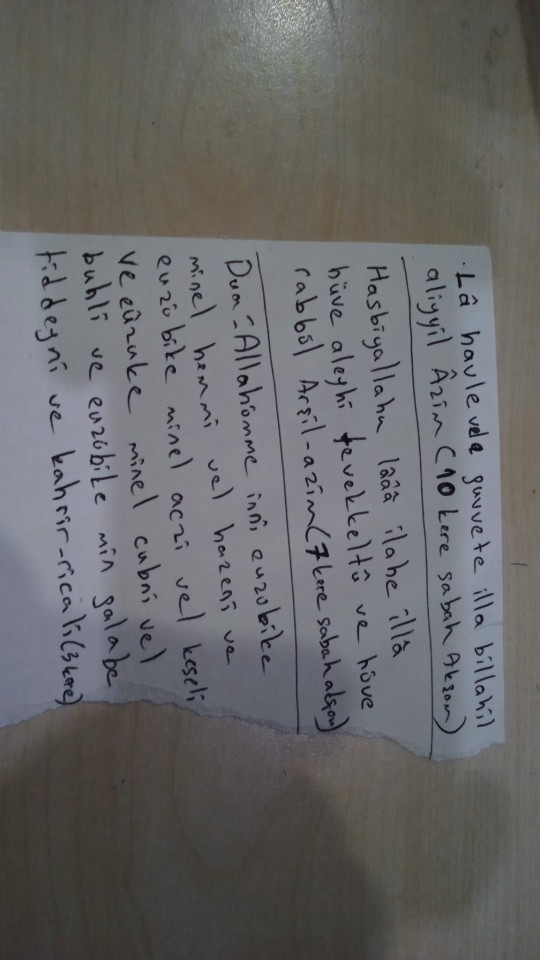 . Lâ havle vele guvvete illa billahil
aliyyil Âzim (10 kere sabah Akşam)
Hasbiyallahu lââa ilahe illâ
hüve aleyhi tevekkeltû ve hüve
rabbül Arşil-azim (7 kere sabah akşam)
Dua - Allahümme inni euzübike
minel hemmi vel hazeni ve
euzübike minel aczi vel keseli
ve eûzuke minel cubni vel
buhli ve euzübike min galabe
tiddeyni ve kahrir-ricali (3 kere)